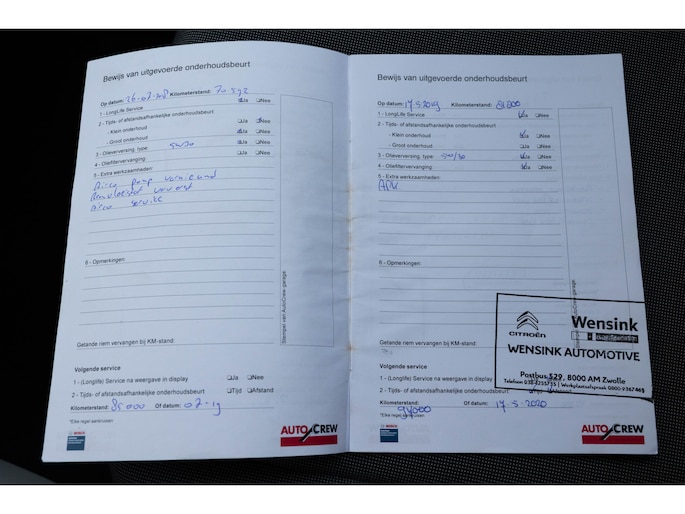 Bewijs van uitgevoerde onderhoudsbeurt
Op datum: 26-02-2018 Kilometerstand:
1 - LongLife Service Ja Nee
2 - Tijds- of afstandsafhankelijke onderhoudsbeurt Ja Nee
- Klein onderhoud Ja Nee
- Groot onderhoud Ja Nee
3 - Olieverversing, type 5W30 Ja Nee
4 - Oliefiltervervanging Ja Nee
5 - Extra werkzaamheden
Airco pomp vernieuwd
Remvloeistof ververst
Airco service
6 - Opmerkingen:
Stempel van AutoCrew-garage
Getande riem vervangen bij KM-stand:
Volgende service
1 - (Longlife) Service na weergave in display Ja Nee
2 - Tijds- of afstandsafhankelijke onderhoudsbeurt Tijd Afstand
Kilometerstand: 85000 Of datum: 02-19
*Elke regel aankruisen
BOSCH
AUTO CREW
Bewijs van uitgevoerde onderhoudsbeurt
Op datum: 17-5-2019 Kilometerstand: 81800
1 - LongLife Service Ja Nee
2 - Tijds- of afstandsafhankelijke onderhoudsbeurt
- Klein onderhoud Ja Nee
- Groot onderhoud Ja Nee
3 - Olieverversing, type 5W/30 Ja Nee
4 - Oliefiltervervanging Ja Nee
5 - Extra werkzaamheden
APK
6 - Opmerkingen:
CITROËN
Wensink
WENSINK AUTOMOTIVE
Postbus 529, 8000 AM Zwolle
Getande riem vervangen bij KM-stand:
Volgende service
1 - (Longlife) Service na weergave in display
2 - Tijds- of afstandsafhankelijke onderhoudsbeurt
Kilometerstand: Of datum: 17-5-2020
*Elke regel aankruisen
BOSCH
AUTO CREW